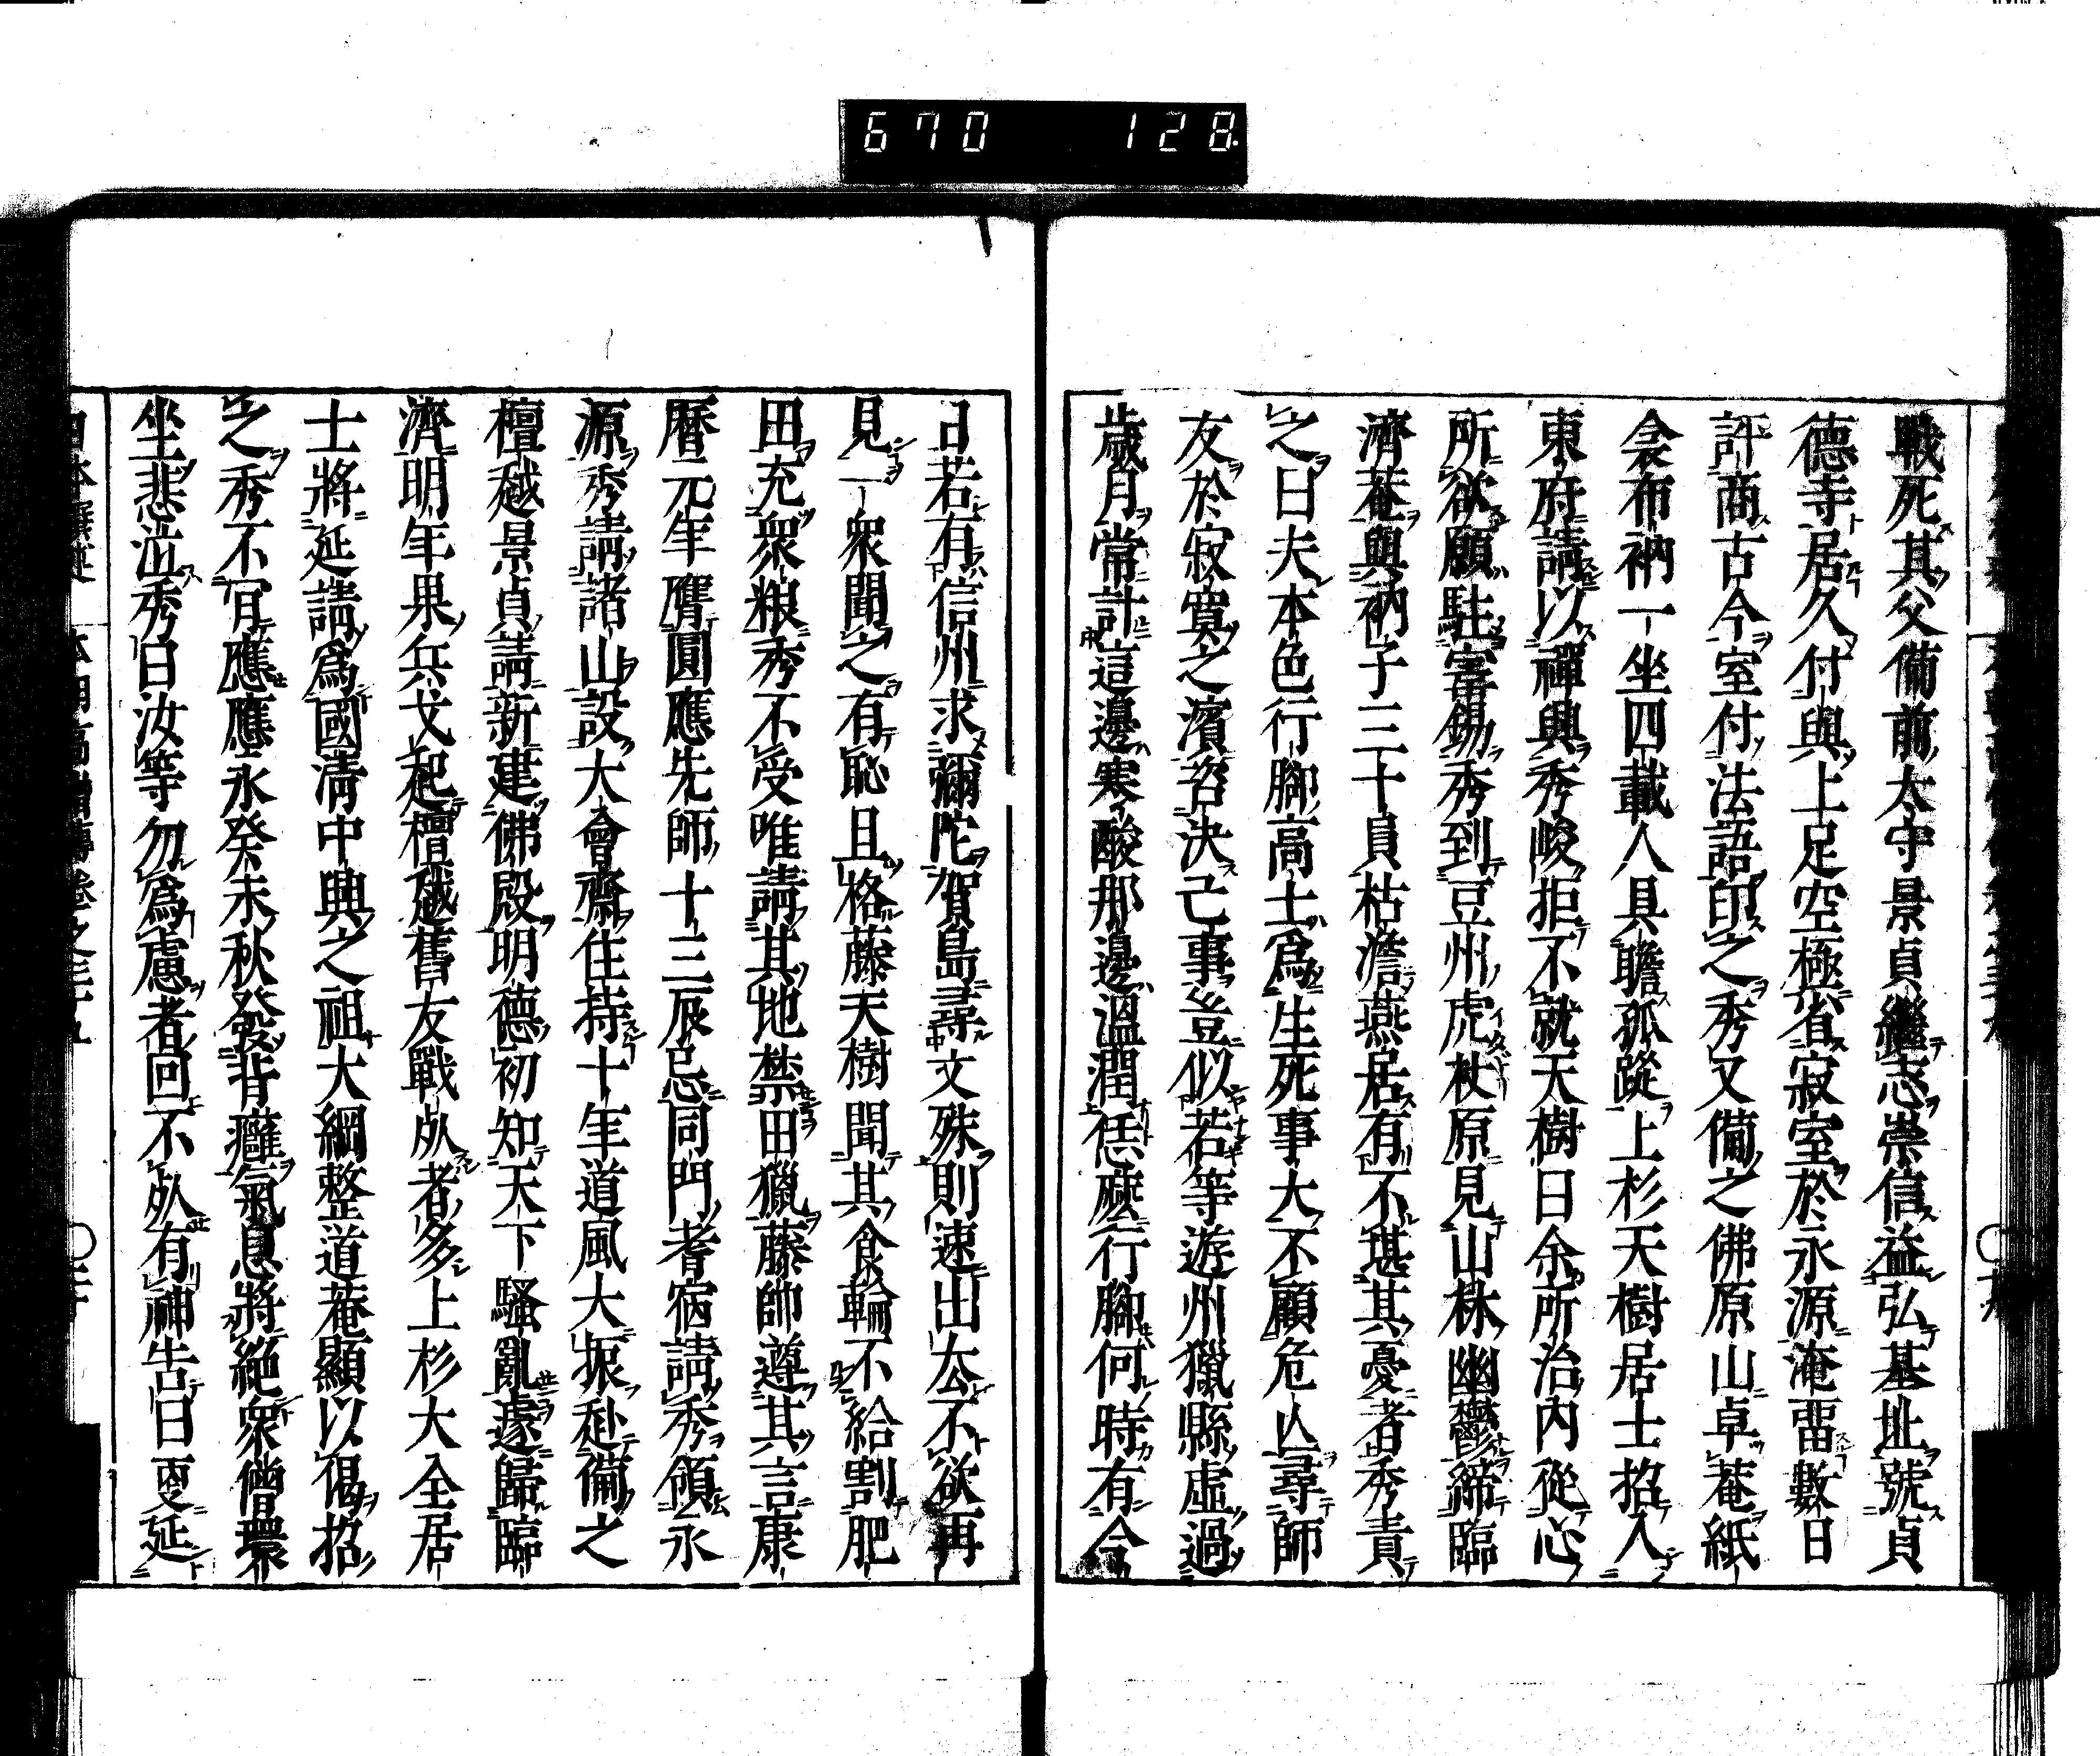 670 128
戰死其父備前太守景貞繼志崇信益弘基址號貞
德寺居久付與上足空極省寂室於永源淹畱數日
評商古今室付法語印之秀又備之佛原山卓菴紙
衾布衲一坐四載人具瞻孤蹤上杉天樹居士招入
東府請以禪興秀峻拒不就天樹曰余所治內從心
所欲願駐富錫秀到豆州虎杖原見山林幽鬱締臨
濟菴與衲子三十員枯澹燕居有不堪其憂者秀責
之曰夫本色行脚高士爲生死事大不顧危亾尋師
友於寂寞之濱咨決己事豈似若等遊州獵縣虛過
歲月常計這邊寒酸那邊溫潤恁麼行腳何時有今
日若有信州求彌陀賀島尋文殊則速出厺不欲再
見一衆聞之有恥且格藤天樹聞其食輪不給割肥
田充衆粮秀不受唯請其地禁田獵藤帥遵其言康
曆元年膺圓應先師十三辰忌同門耆宿請秀領永
源秀請諸山設大會齋住持十年道風大振赴備之
檀越景貞請新建佛殿明德初知天下騷亂遽歸臨
濟明年果兵戈起檀越舊友戰死者多上杉大全居
士將延請爲國清中興之祖大綱整道菴顯以偈招
之秀不肎應應永癸未秋發背癰氣息將絕衆僧環
坐悲泣秀曰汝等勿爲慮者回不死有神告曰更延